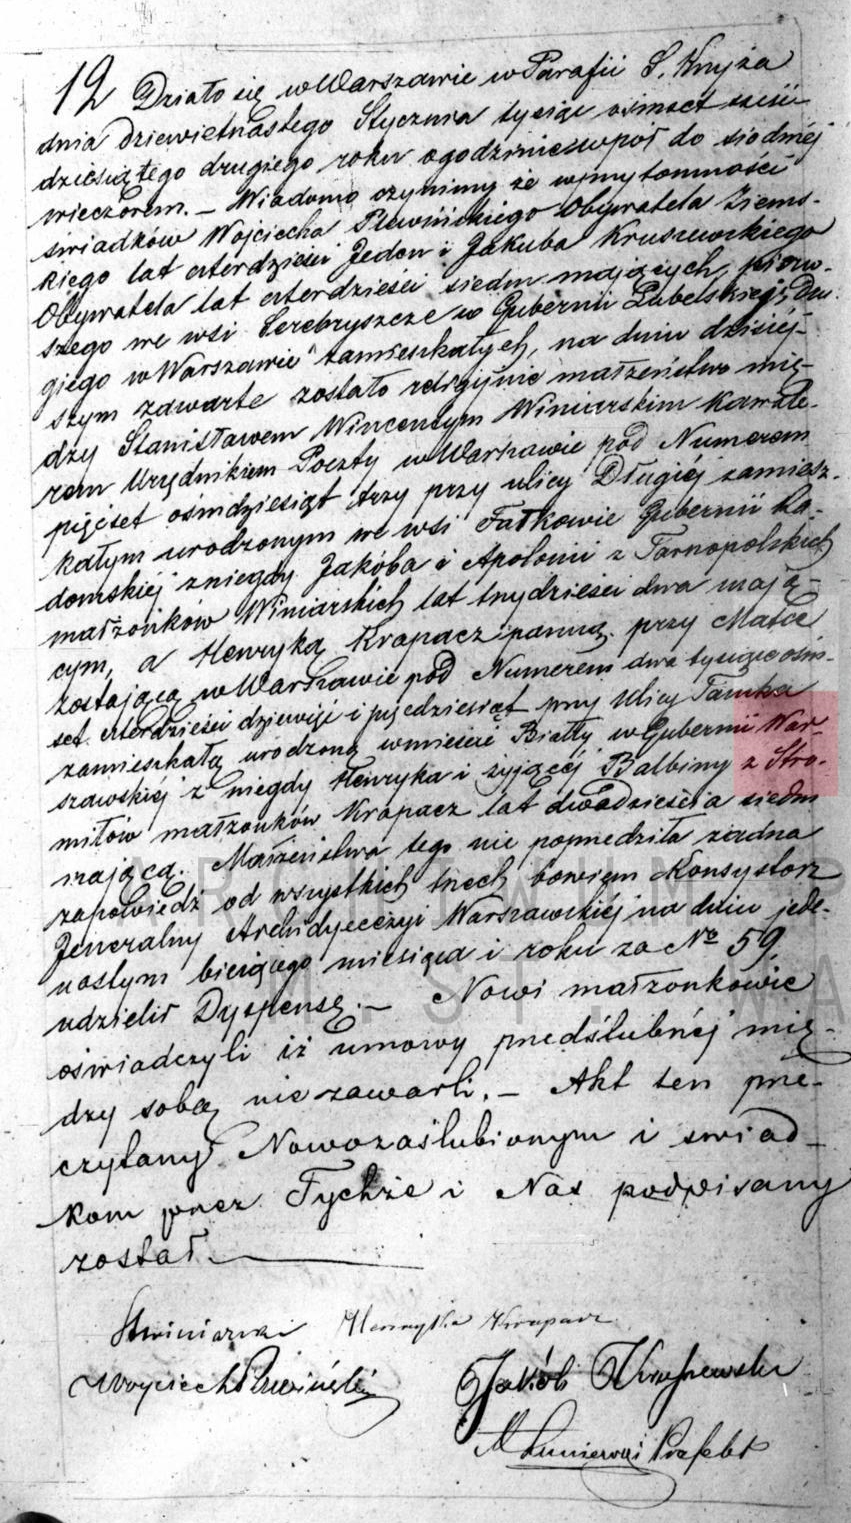 12 Działo się w Warszawie w Parafii S. Krzyża
dnia dziewietnastego Stycznia tysiąc ośmset sześć-
dziesiątego drugiego roku o godzinie wpół do siodméj
wieczorem. — Wiadomo czynimy że w przytomności
świadków Wojciecha Obywatela Ziems-
kiego lat czterdzieści Jeden i Jakuba Kruszewskiego
Obywatela lat czterdzieści siedm mających, pierw-
szego we wsi Serebryszcze w Gubernii Lubelskiéj, dru-
giego w Warszawie zamieszkałych, na dniu dzisiéj-
szym zawarte zostało religijne małżeństwo mię-
dzy Stanisławem Wincentym Winiarskim Kawale-
rem Urzędnikiem Poczty w Warszawie pod Numerem
pięćset ośmdziesiąt trzy przy ulicy Długiéj zamiesz-
kałym urodzonym we wsi Fałkowie Gubernii Ra-
domskiéj z niegdy Jakóba i Apolonii z Tarnopolskich
małżonków Winiarskich lat trzydzieści dwa mają-
cym, a Henryką Krapacz panną przy Matce
zostającą w Warszawie pod Numerem dwa tysiące ośm-
set czterdzieści dziewięć i pięćdziesiąt przy Ulicy Tamka
zamieszkałą urodzoną w mieście Biały w Gubernii War-
szawskiéj z niegdy Henryka i żyjącéj Balbiny z Stro-
miłów małżonków Krapacz lat dwadzieścia siedm
mającą. Małżeństwa tego nie poprzedziła żadna
zapowiedź od wszystkich trzech bowiem Konsystorz
Jeneralny Archidyecezyi Warszawskiéj na dniu jede-
nastym bieżącego miesiąca i roku za No 59.
udzielił Dyspensę. — Nowi małżonkowie
oświadczyli iż umowy przedślubnéj mię-
dzy sobą nie zawarli. — Akt ten prze-
czytany Nowozaślubionym i świad-
kom przez Tychże i Nas podpisany
został.
SWiniarski Henryka Krapacz
Woyciech
Jakób Kruszewski
Prefekt
ARCHIWUM P
M.ST.WA